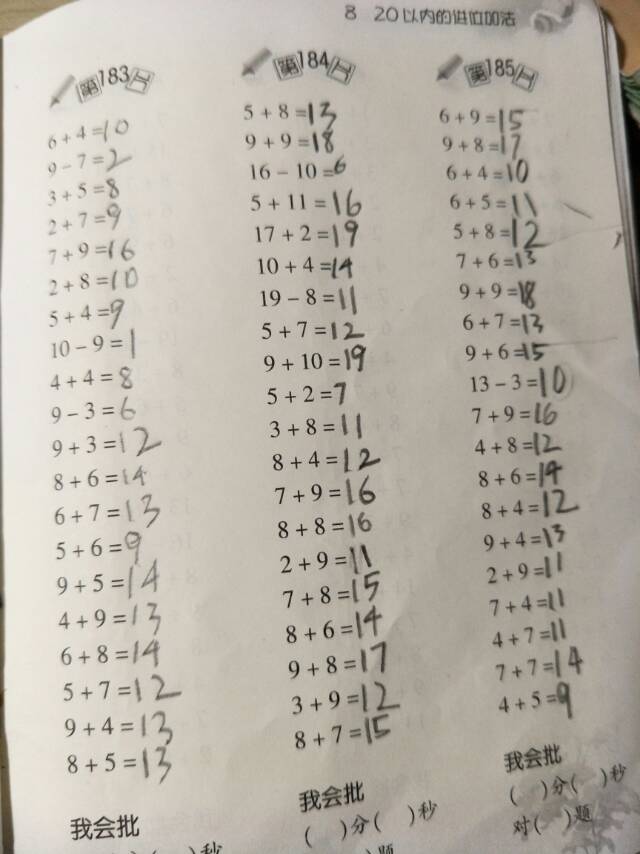 8 20以内的进位加法
第183日
6+4=10
9-7=2
3+5=8
2+7=9
7+9=16
2+8=10
5+4=9
10-9=1
4+4=8
9-3=6
9+3=12
8+6=14
6+7=13
5+6=9
9+5=14
4+9=13
6+8=14
5+7=12
9+4=13
8+5=13
我会批
秒
第184日
5+8=13
9+9=18
16-10=6
5+11=16
17+2=19
10+4=14
19-8=11
5+7=12
9+10=19
5+2=7
3+8=11
8+4=12
7+9=16
8+8=16
2+9=11
7+8=15
8+6=14
9+8=17
3+9=12
8+7=15
我会批
( )分( )秒
题
第185日
6+9=15
9+8=17
6+4=10
6+5=11
5+8=12
7+6=13
9+9=18
6+7=13
9+6=15
13-3=10
7+9=16
4+8=12
8+6=14
8+4=12
9+4=13
2+9=11
7+4=11
4+7=11
7+7=14
4+5=9
我会批
( )分( )秒
对( )题